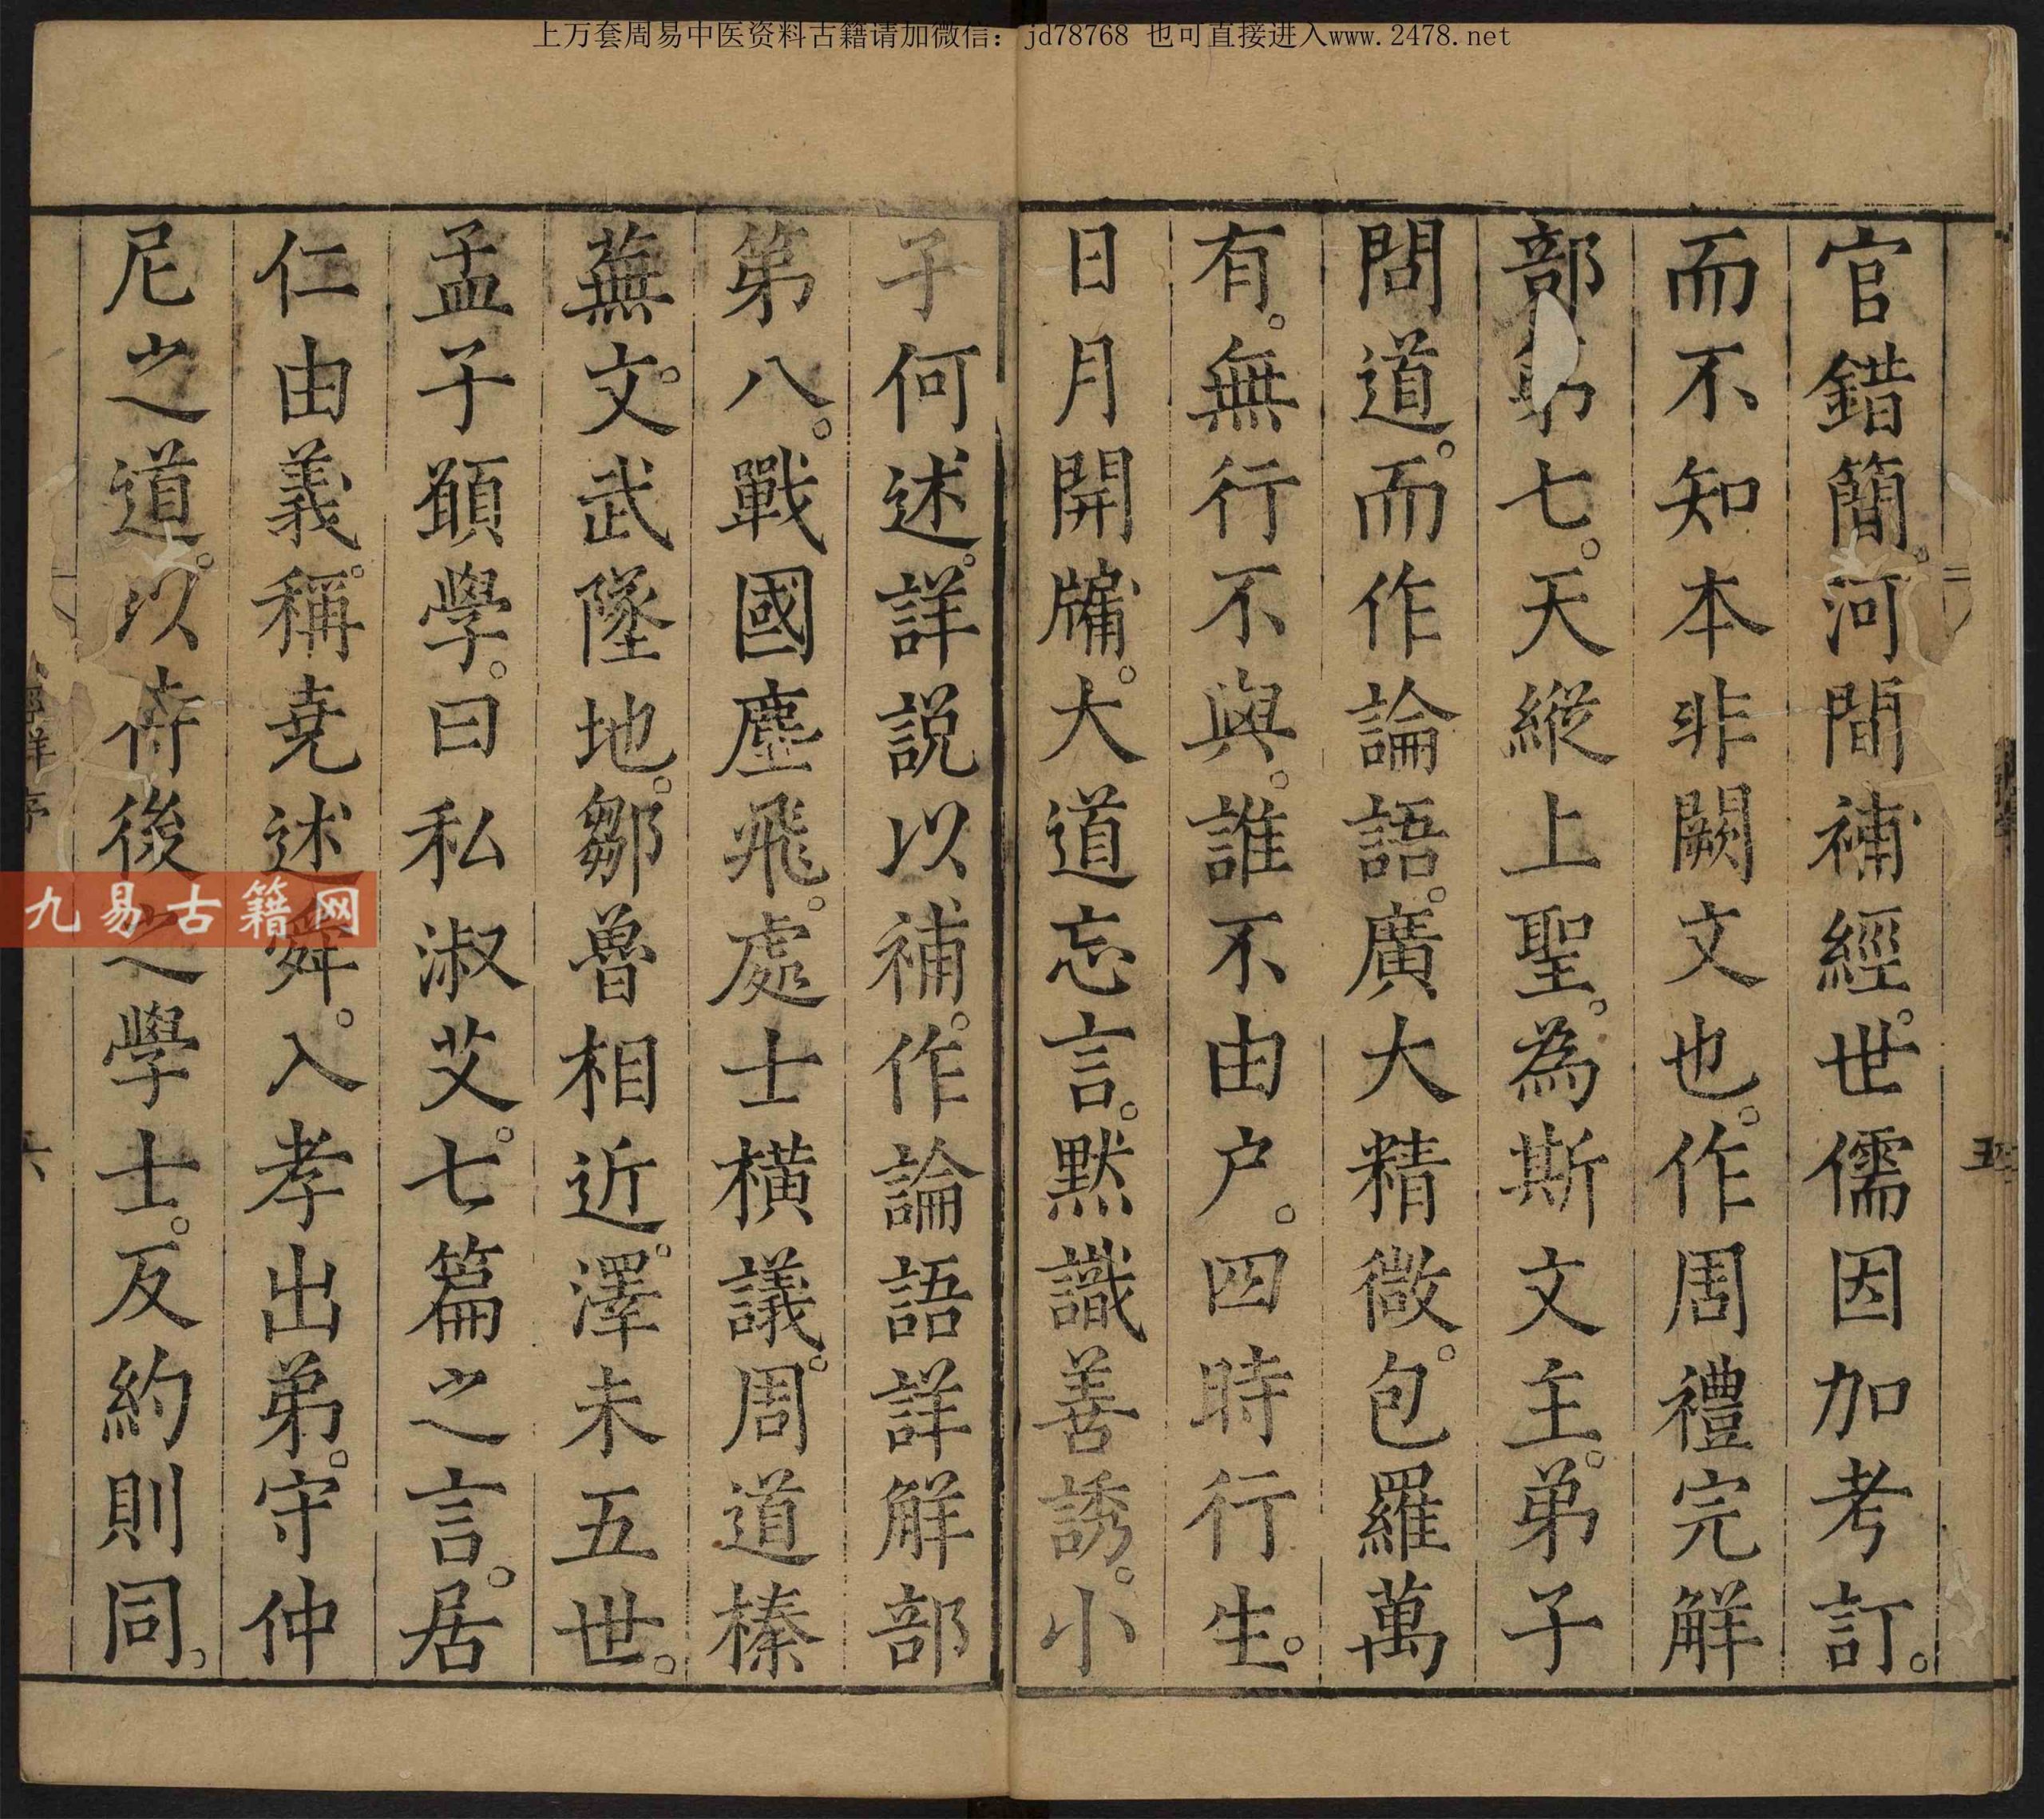 上万套周易中医资料古籍请加微信：jd78768 也可直接进入www.2478.net
官錯簡。河間補經。世儒因加考訂。
而不知本非闕文也。作周禮完解
部第七。天縱上聖。為斯文主。弟子
問道。而作論語。廣大精微。包羅萬
有。無行不與。誰不由户。四時行生。
日月開牖。大道忘言。默識善誘。小
子何述。詳說以補。作論語詳解部
第八。戰國塵飛。處士橫議。周道榛
蕪。文武墜地。鄒魯相近。澤未五世。
孟子願學。曰私淑艾。七篇之言。居
仁由義。稱堯述舜。入孝出弟。守仲
尼之道。以俟後之學士。反約則同。
五
六
九易古籍网